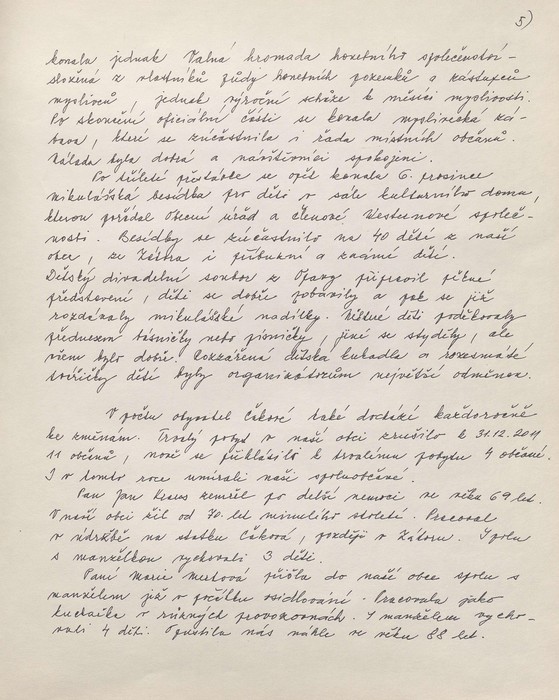 5)
konala jednak Valná hromada honebního společenství -
složená z vlastníků půdy honebních pozemků a zástupců
myslivců, jednak výroční schůze k měsíci myslivosti.
Po skončení oficiální části se konala myslivecká zá-
bava, které se zúčastnila i řada místních občanů.
Nálada byla dobrá a návštěvníci spokojeni.
Po tříleté přestávce se opět konala 6. prosince
mikulášská besídka pro děti v sále kulturního domu,
kterou pořádal Obecní úřad a členové Westernové společ-
nosti. Besídky se zúčastnilo na 40 dětí z naší
obce, ze Zátora i příbuzní a známí dětí.
Dětský divadelní soubor z Opavy připravil pěkné
představení, děti se dobře pobavily a pak se již
rozdávaly mikulášské nadílky. Některé děti poděkovaly
přednesem básničky nebo písničky, jiné se styděly, ale
všem bylo dobře. Rozzářená dětská kukadla a rozesmáté
tvářičky dětí byly organizátorům největší odměnou.
V počtu obyvatel Čakové také dochází každoročně
ke změnám. Trvalý pobyt v naší obci zrušilo k 31.12.2011
11 občanů, nově se přihlásilo k trvalému pobytu 4 občané.
I v tomto roce umírali naši spoluobčané.
Pan Jan zemřel po delší nemoci ve věku 69 let.
V naší obci žil od 70. let minulého století. Pracoval
v údržbě na statku Čaková, později v Zátoru. S polu
s manželkou vychovali 3 děti.
Paní Marie přišla do naší obce spolu s
manželem již v počátku osidlování. Pracovala jako
kuchařka v různých provozovnách. S manželem vycho-
vali 4 děti. Opustila nás náhle ve věku 88 let.